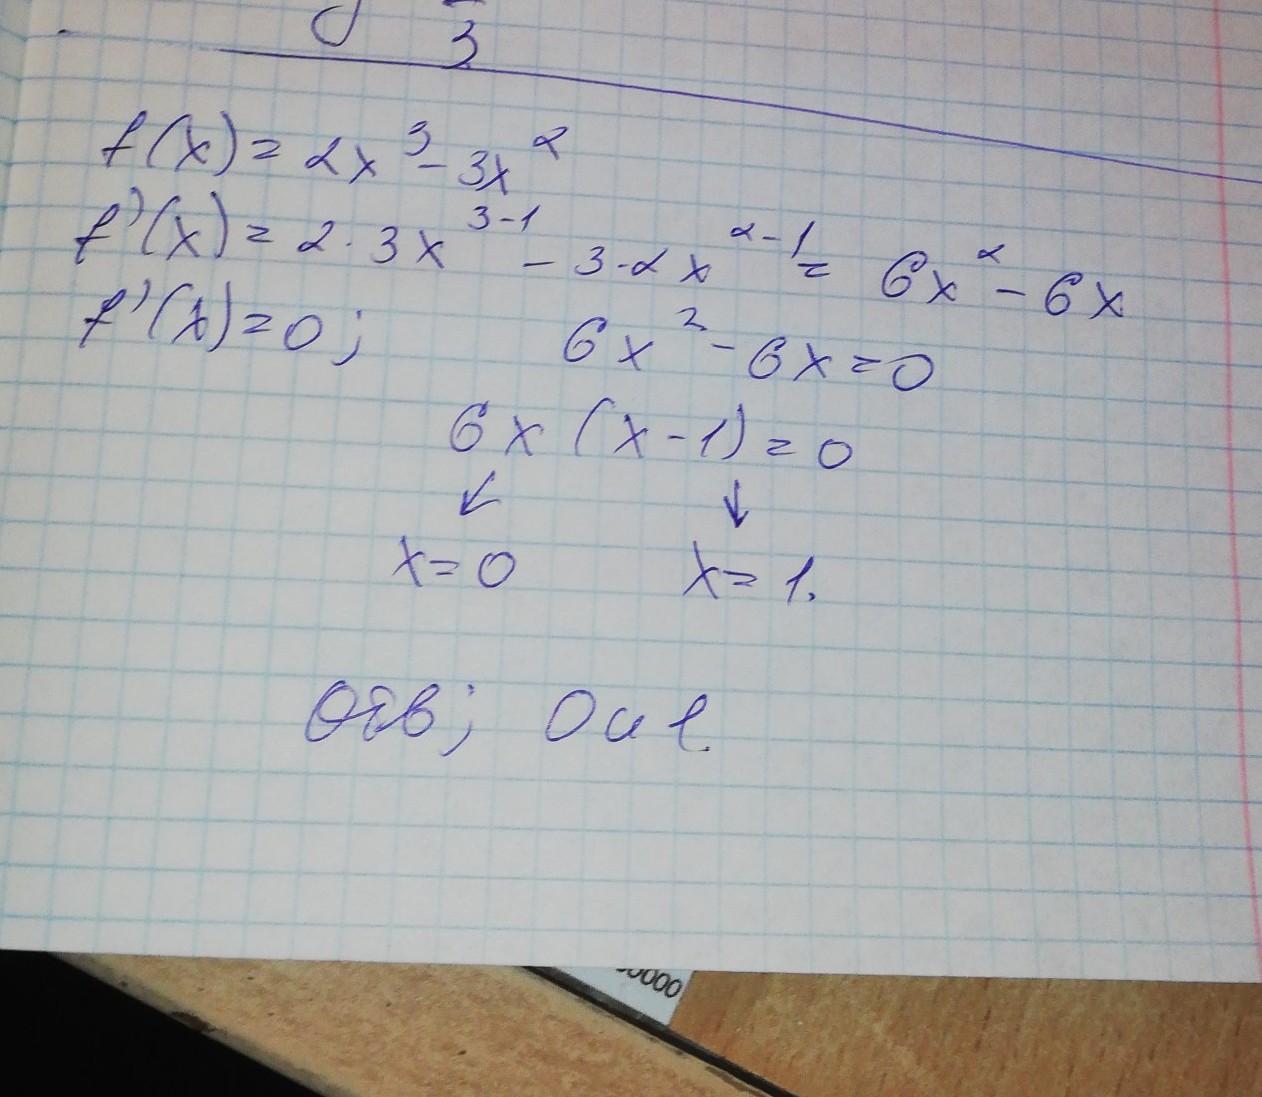 3
f(x) = 2x³ - 3x²
f'(x) = 2 · 3x³⁻¹ - 3 · 2x²⁻¹ = 6x² - 6x
f'(x) = 0; 6x² - 6x = 0
6x (x - 1) = 0
↙ ↓
x = 0 x = 1.
Отв; 0 и 1.
0000